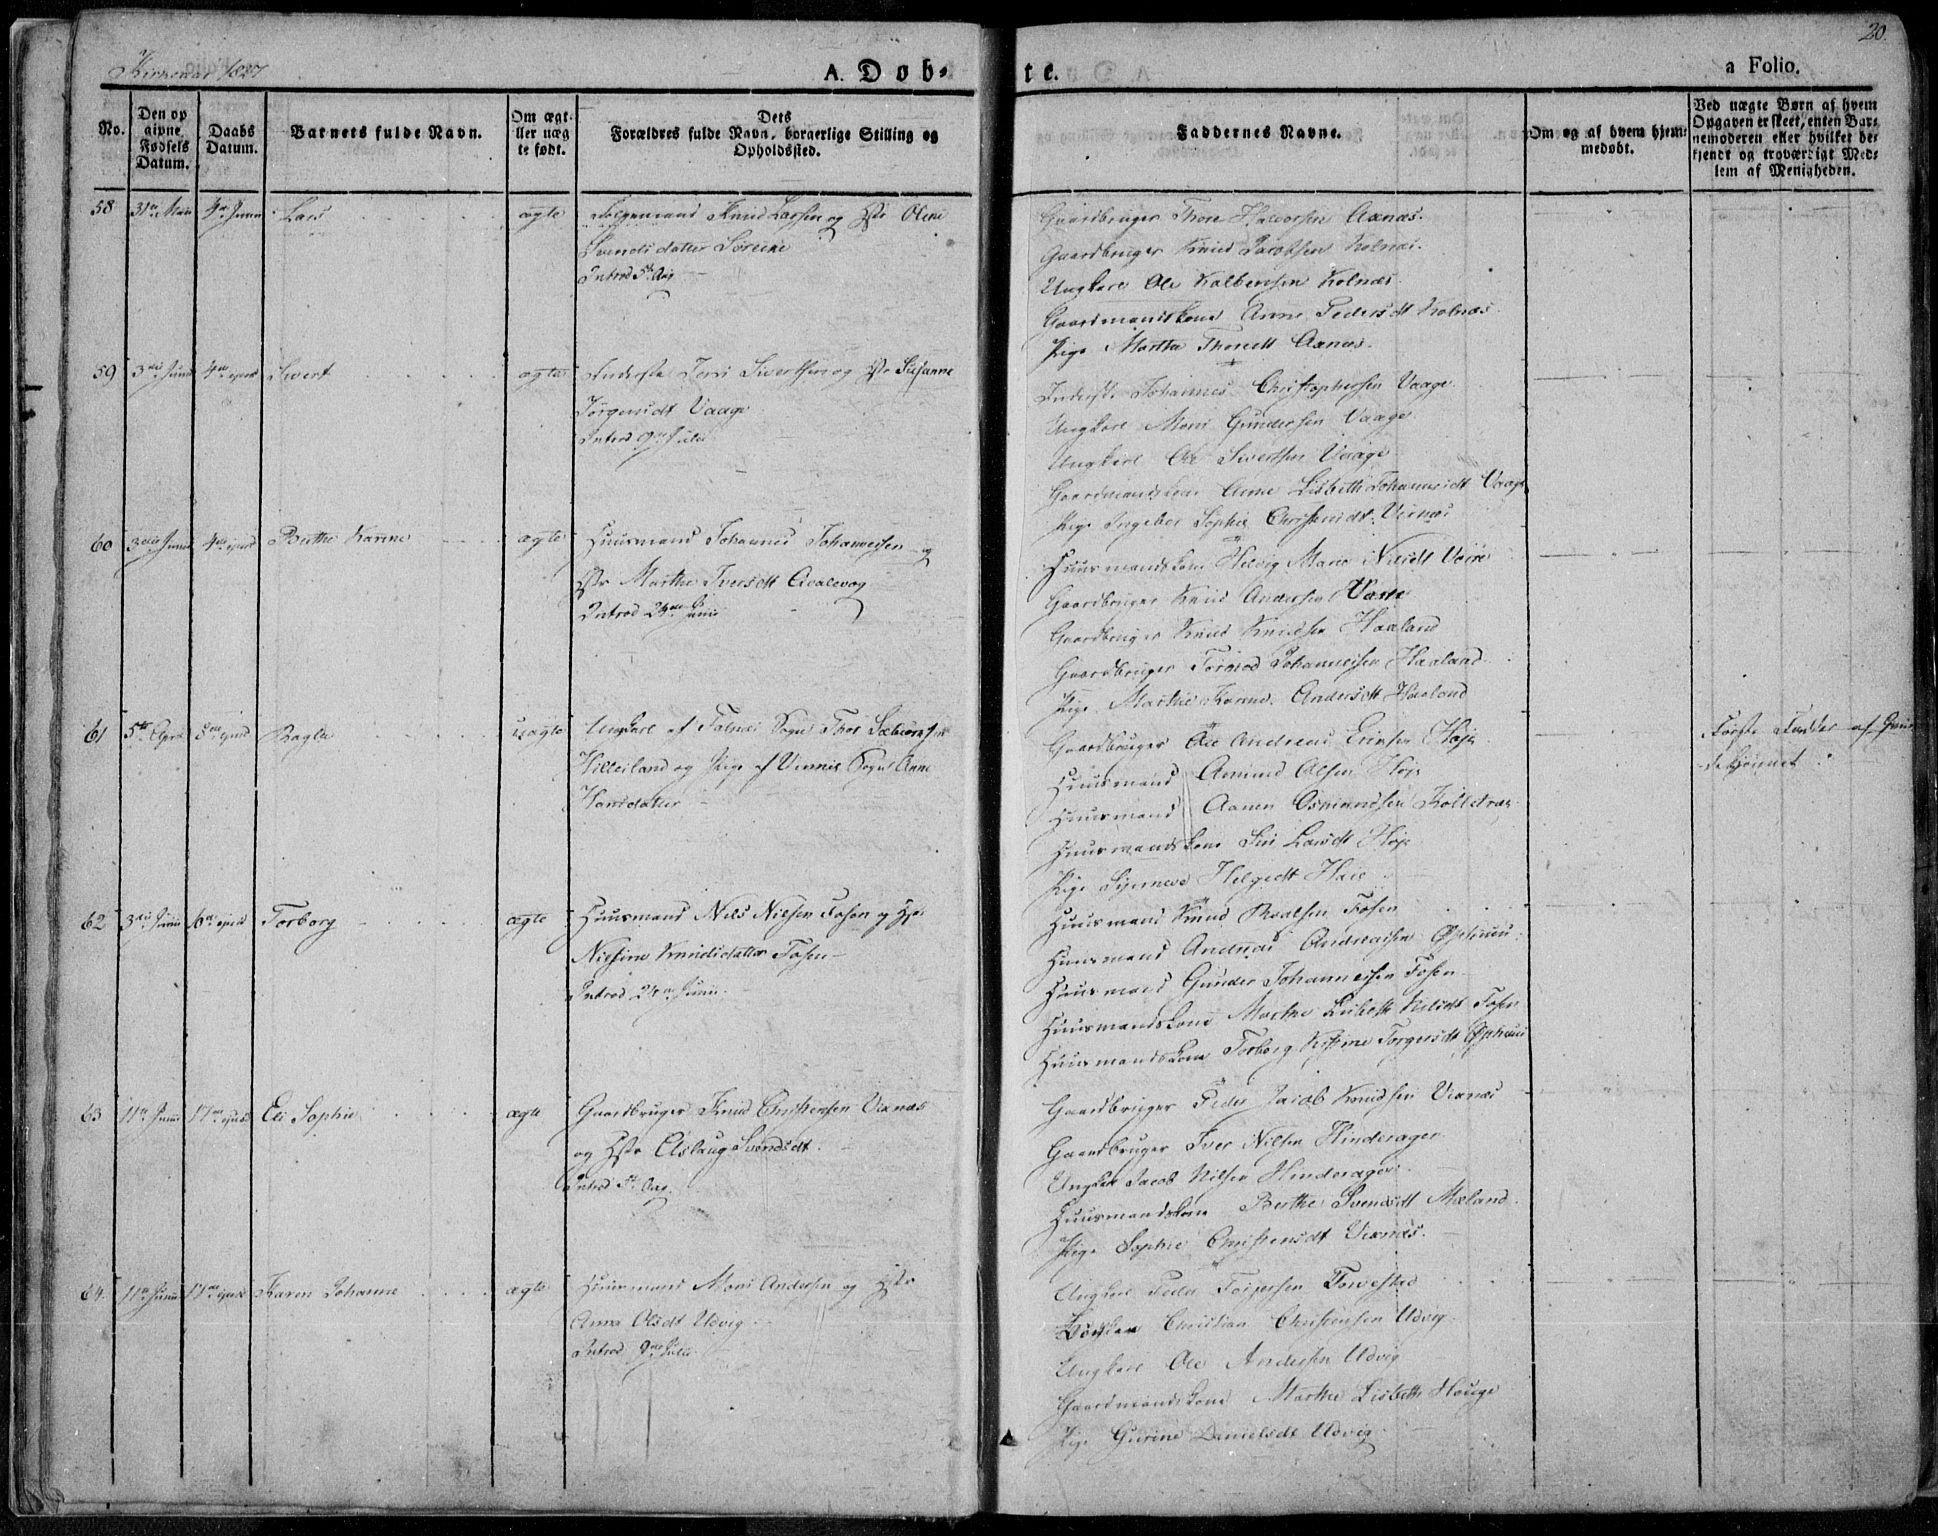 20.
Kirkeaar 1827
A. Døb-
te.
a Folio.
No.
Den op
givne
Fødsels
Datum.
Daabs
Datum.
Barnets fulde Navn.
Om ægt-
ller uæg
te født.
Dets
Forældres fulde Navn, borgerlige Stilling og
Opholdssted.
Faddernes Navne.
Om og af hvem hjem-
medøbt.
Ved uægte Børn af hvem
Opgaven er skeet, enten Bar-
nemoderen eller hvilket be-
kjendt og troværdigt Med-
lem af Menigheden.
58 31te Mai 4de Juni Lars ægte Knud Larssen og Hst Oline
Svendsdatter Søreike
Introd 5te Aug
Gaardbruger Thore Halvorsen Axnæs.
Gaardbruger Knud Jacobsen Kolnæs.
Ungkarl Ole Kolbensen Kolnæs.
Gaardmandskone Anne Pedersdt Kolnæs.
Pige Martha Thoresdt Axnæs.
59 3die Juni 4de ejusd Sivert ægte Inderste Jens Sivertsen og Hst Susanne
Jørgensdt Vaage
Introd 9de Julii
Inderste Johannes Christophersen Vaage
Ungkarl Mons Gundersen Vaage
Ungkarl Ole Sivertsen Vaage
Gaardmandskone Anne Lisbeth Johannesdt Vaage
Pige Ingebor Sophie Christensdt Vixnæs
60 3die Juni 4de ejusd Berthe Karine ægte Huusmand Johannes Johannessen og
Hst Marthe Iversdt Avalsvog
Introd 24de Juni
Huusmandskone Helvig Marie Nilsdt Vaare
Gaardbruger Knud Andersen Vaare
Gaardbruger Knud Knudsen Haaland
Gaardbruger Tormod Johannessen Haaland
Pige Marthe Karine Andersdt Haaland
61 5te April 8de ejusd Ragla uægte Ungkarl af Sogn Thor Sæbiørnsen
Hilleiland og Pige af Sogn Anne
Hansdatter
Gaardbruger Ole Andreas Ericsen Høje
Huusmand Amund Olsen Høje
Huusmand Aanen Osmundsen
Huusmandskone Siri Larsdt Høje
Pige Helgedt
Første Fadder af
62 3die Juni 10de ejusd Torborg ægte Huusmand Nils Nilsen Fosen og Hst
Nilsine Knudsdatter Fosen
Introd 24de Juni
Huusmand Knud Roalsen Fosen
Huusmand Andreas Andreassen
Huusmand Gunder Johannessen Fosen
Huusmandskone Marthe Lisbeth Nilsdt Fosen
Huusmandskone Torborg Kistine Torgersdt
63 11te Juni 17de ejusd Eli Sophie ægte Gaardbruger Knud Christensen Vixnæs
og Hst Aslaug Svendsdt
Introd 5te Aug.
Gaardbruger Peder Jacob Knudsen Vixnæs
Gaardbruger Iver Nilsen Hinderager
Ungkarl Jacob Nilsen Hinderager
Huusmandskone Berthe Svendsdt Mæland
Pige Sophie Christensdt Vixnæs.
64 11te Juni 17de ejusd Karen Johanne ægte Huusmand Mons Andersen og Hst
Anna Olsdt Udvig
Introd 9de Julii
Ungkarl Peder Torjersen Torvestad
Christian Christensen Udvig
Ungkarl Ole Andersen Udvig
Gaardmandskone Marthe Lisbeth Hauge
Pige Gurine Danielsdt Udvig